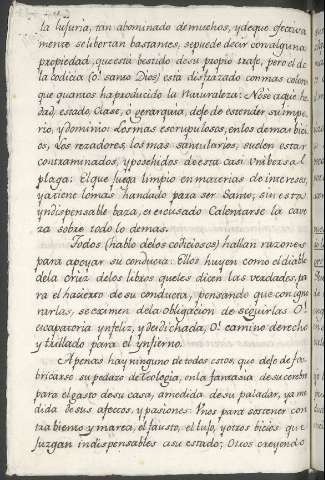 la lujuria, tan abominado de muchos, y de que efectiva
mente se libertan bastantes, se puede decir con alguna
propiedad, que està bestido de su propio traje, pero el de
la codicia (ò! santo Dios) està disfrazado con mas colores
que quantos ha producido la Naturaleza: No sè a que he
dad, estado, Clase, ò gerarquia, deje de estender su impe
rio, y dominio: Los mas escrupulosos, en los demas bici
os, los rezadores, los mas santularios, suelen estar
contaminados, y posehidos de esta casi Vniversal
plaga: El que juega limpio en materias de intereses,
ya tiene lo mas handado para ser Santo; sin esta
yndispensable baza, es escusado Calentarse la cave
za sobre todo lo demas.
Todos (hablo de los codiciosos) hallan razones
para apoyar su conducta: Ellos huyen como el diable
de la Cruz de los libros que les dicen las verdades, pa
ra el hacierto de su conducta, pensando que con igno
rarlas, se eximen de la obligacion de seguirlas O!
escapatoria ynfeliz, y desdichada, O! camino derecho
y trillado para el ynfierno.
Apenas hay ninguno de todos estos, que deje de fa
bricarse su pedazo de Teologia, en la fantasia de su cerebro
para el gasto de su casa, a medida de su paladar, ya me
dida de sus afectos, y pasiones: Vnos para sostener con
tra biento y marea, el fausto, el lujo, y otros bicios que
Juzgan indispensables a su estado; Otros creyendo